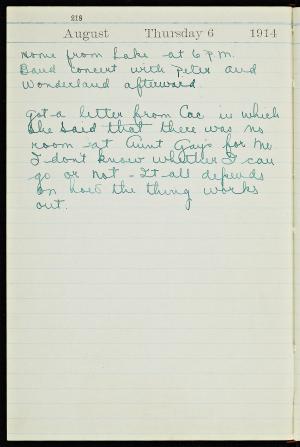 218
August Thursday 6 1914
Home from Lake at 6 P.M.
Band concert with Peter and
Wonderland afterward.
got a letter from Cac in which
she said that there was no
room at Aunt Gay's for me
I don't know whether I can
go or not - It all depends
on how the thing works
out.